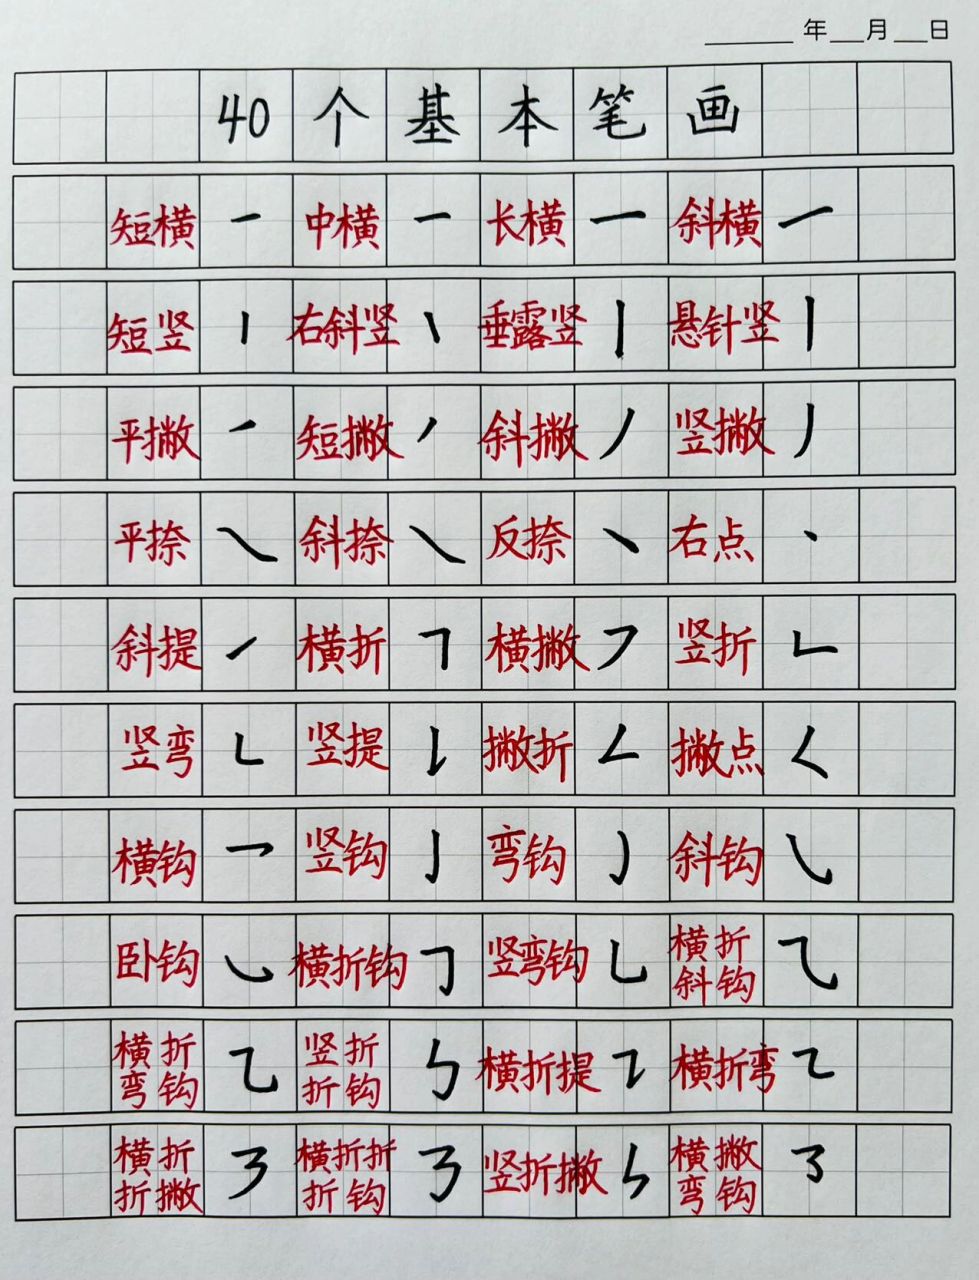 年 月 日
40个基本笔画
短横 ㇐ 中横 ㇐ 长横 ㇐ 斜横 ㇐
短竖 ㇑ 右斜竖 ㇑ 垂露竖 ㇑ 悬针竖 ㇑
平撇 ㇒ 短撇 ㇒ 斜撇 ㇒ 竖撇 ㇓
平捺 ㇏ 斜捺 ㇏ 反捺 ㇔ 右点 ㇔
斜提 ㇀ 横折 ㇕ 横撇 ㇇ 竖折 ㇗
竖弯 ㇄ 竖提 ㇙ 撇折 ㇜ 撇点 ㇛
横钩 ㇖ 竖钩 ㇚ 弯钩 ㇁ 斜钩 ㇂
卧钩 ㇃ 横折钩 ㇆ 竖弯钩 ㇟ 横折斜钩 ⺄
横折弯钩 ㇈ 竖折折钩 ㇉ 横折提 ㇊ 横折弯 ㇍
横折折撇 ㇋ 横折折折钩 ㇡ 竖折撇 ㇞ 横撇弯钩 ㇌